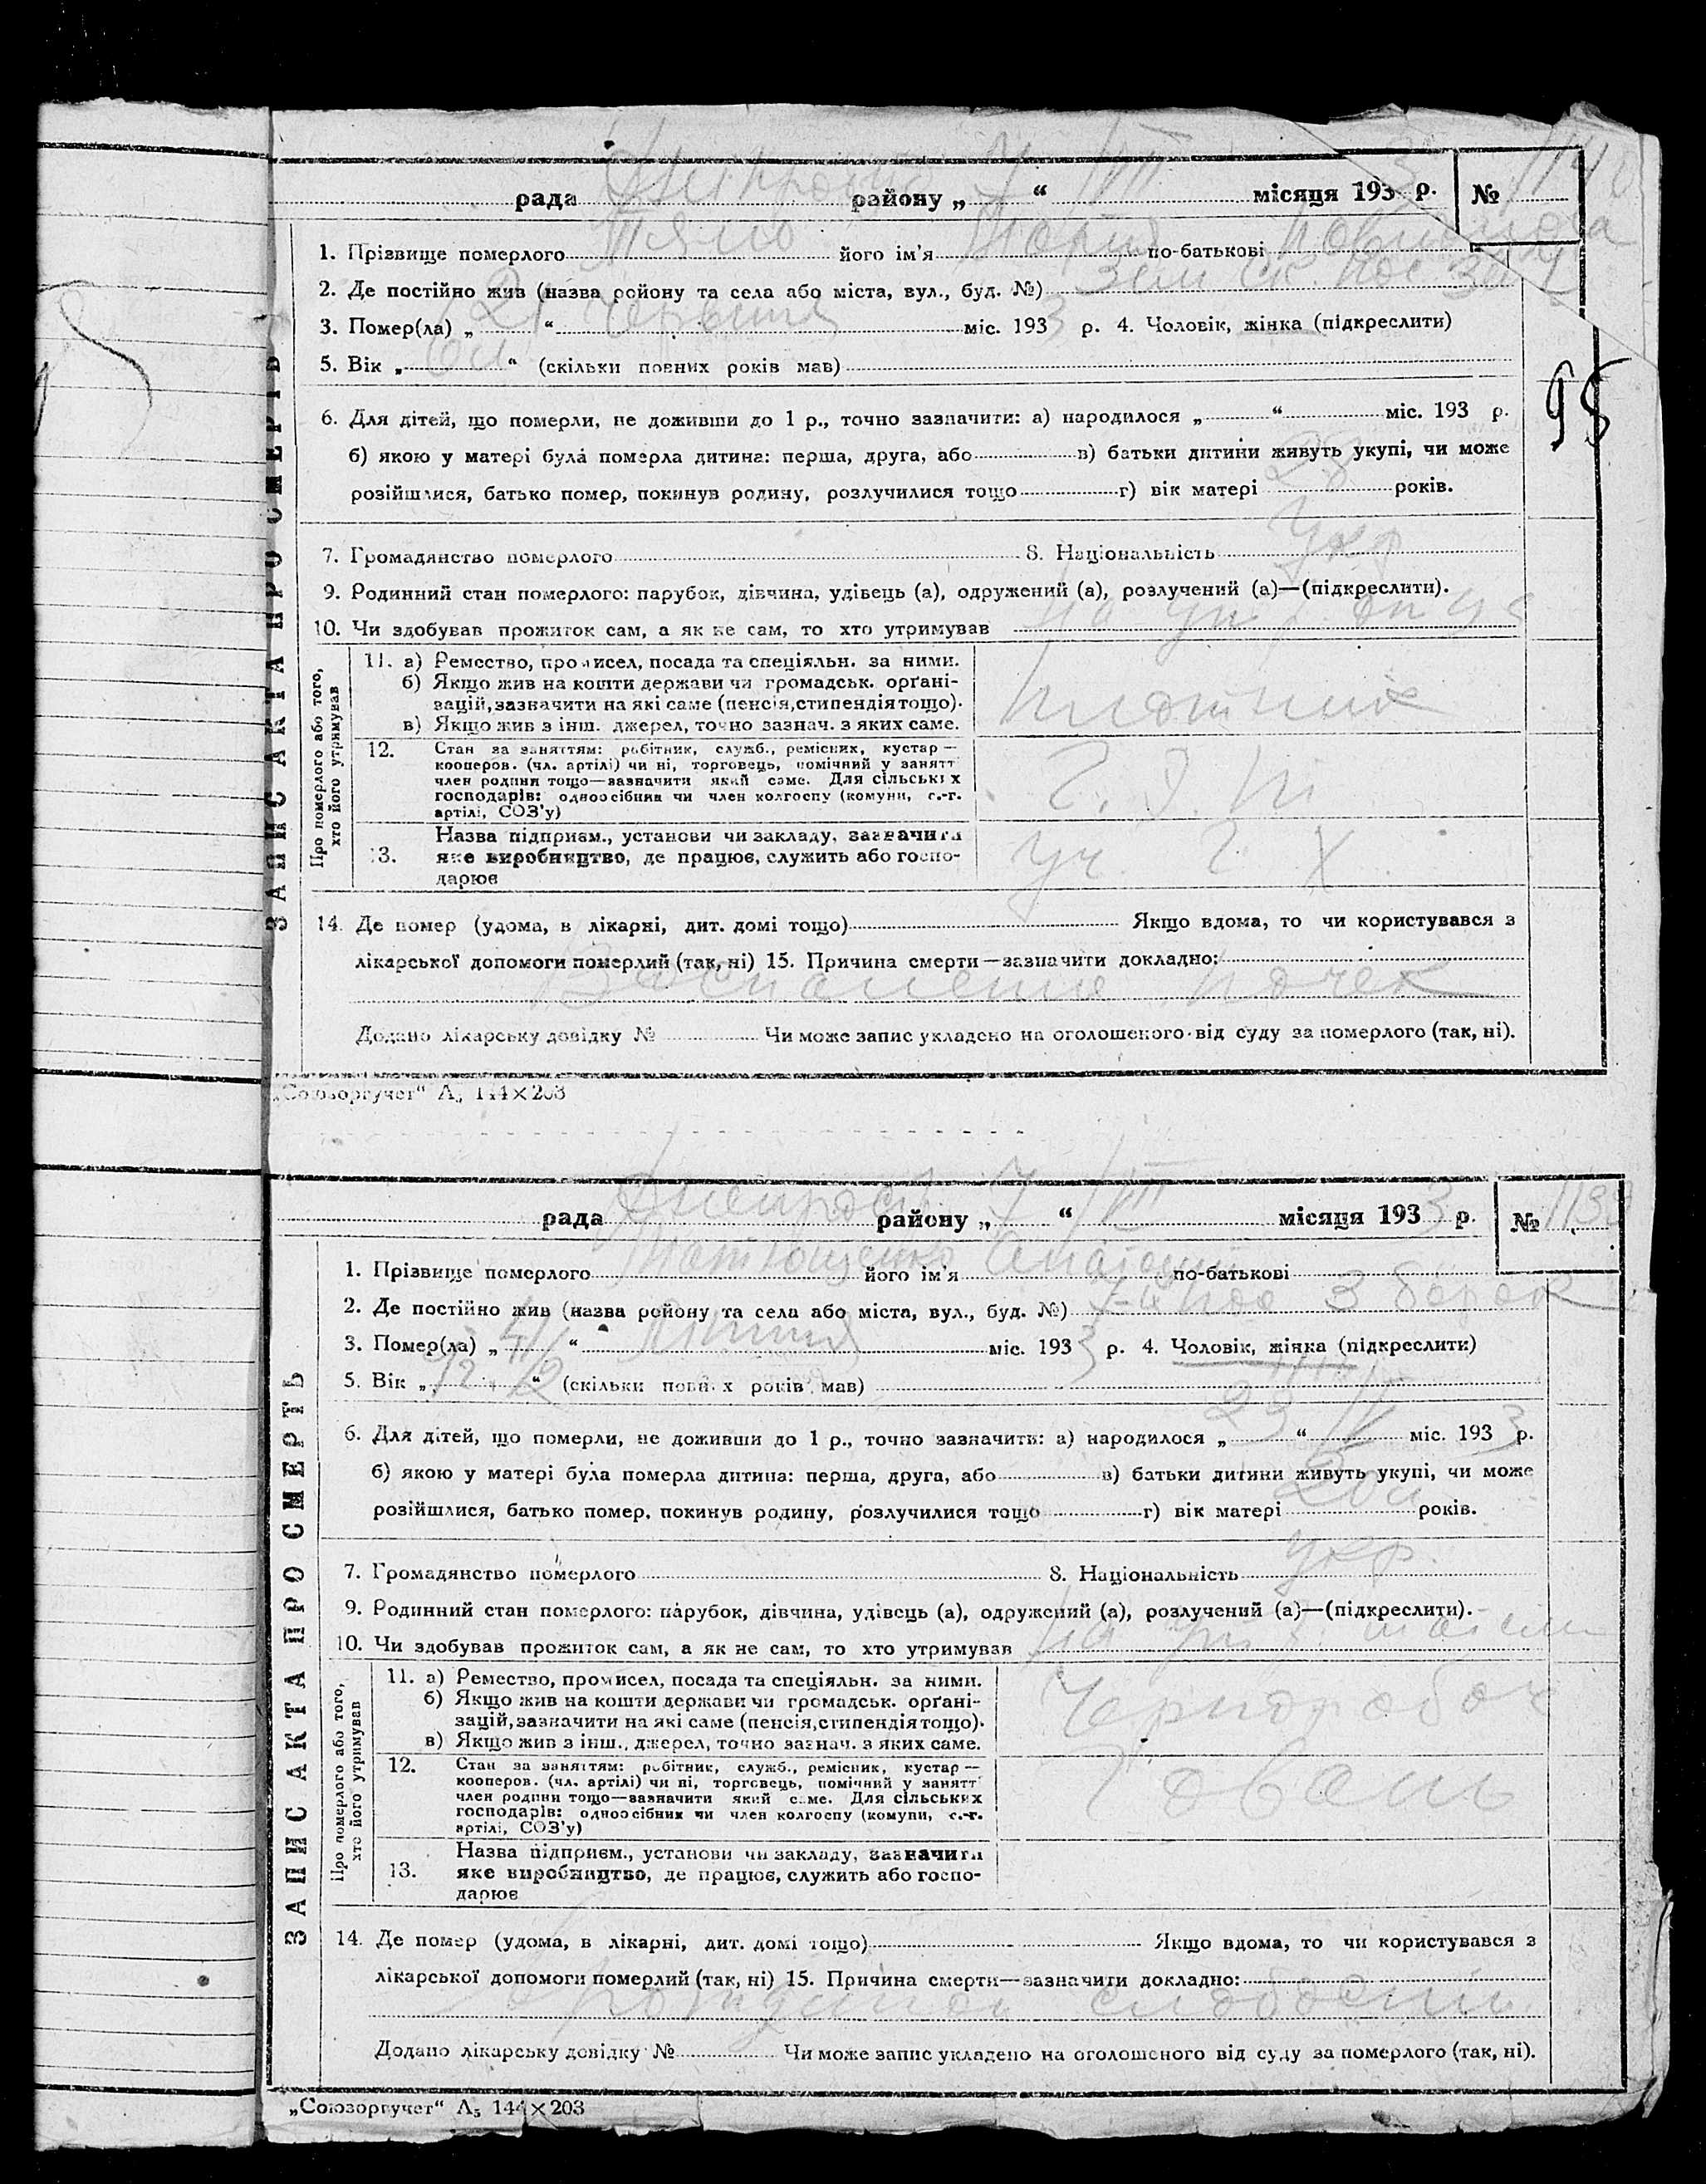 рада района „7“ VIII місяця 1933 р. № 1140
1. Прізвище померлого його ім'я по-батькові
2. Де постійно жив (назва району та села або міста, вул., буд. №)
3. Помер(ла) „21“ червня міс. 1933 р. 4. Чоловік, жінка (підкреслити)
5. Вік „ “ (скільки повних років мав)
95
6. Для дітей, що померли, не доживши до 1 р., точно зазначити: а) народилося „ “ міс. 193 р.
б) якою у матері була померла дитина: перша, друга, або в) батьки дитини живуть укупі, чи може
розійшлися, батько помер, покинув родину, розлучилися тощо г) вік матері 28 років.
7. Громадянство померлого 8. Національність укр
9. Родинний стан померлого: парубок, дівчина, удівець (а), одружений (а), розлучений (а)—(підкреслити).
10. Чи здобував прожиток сам, а як не сам, то хто утримував
ЗАПИС АКТА ПРО СМЕРТЬ
Про померлого або того, хто його утримував
11. а) Ремество, промисел, посада та спеціяльн. за ними.
б) Якщо жив на кошти держави чи громадськ. орґані-
зацій, зазначити на які саме (пенсія, стипендія тощо).
в) Якщо жив з інш. джерел, точно зазнач. з яких саме.
плотник
12. Стан за заняттям: робітник, служб., ремісник, кустар—
кооперов. (чл. артілі) чи ні, торговець, помічний у занятт
член родини тощо—зазначити який саме. Для сільських
господарів: одноосібник чи член колгоспу (комуни, с.-г.
артілі, СОЗ'у)
13. Назва підприєм., установи чи закладу, зазначити
яке виробництво, де працює, служить або госпо-
дарює
14. Де помер (удома, в лікарні, дит. домі тощо) Якщо вдома, то чи користувався з
лікарської допомоги померлий (так, ні) 15. Причина смерти—зазначити докладно:
Воспаление почек
Додано лікарську довідку № Чи може запис укладено на оголошеного від суду за померлого (так, ні).
„Союзоргучет“ А₅ 144×203
рада району „7“ VIII місяця 1933 р. №
1. Прізвище померлого його ім'я по-батькові
2. Де постійно жив (назва району та села або міста, вул., буд. №) 3 барак
3. Помер(ла) „ “ міс. 1933 р. 4. Чоловік, жінка (підкреслити)
5. Вік „ “ (скільки повних років мав)
6. Для дітей, що померли, не доживши до 1 р., точно зазначить: а) народилося „23“ міс. 1933 р.
б) якою у матері була померла дитина: перша, друга, або в) батьки дитини живуть укупі, чи може
розійшлися, батько помер, покинув родину, розлучилися тощо г) вік матері років.
7. Громадянство померлого 8. Національність укр.
9. Родинний стан померлого: парубок, дівчина, удівець (а), одружений (а), розлучений (а)—(підкреслити).
10. Чи здобував прожиток сам, а як не сам, то хто утримував
ЗАПИС АКТА ПРО СМЕРТЬ
Про померлого або того, хто його утримував
11. а) Ремество, промисел, посада та спеціяльн. за ними.
б) Якщо жив на кошти держави чи громадськ. орґані-
зацій, зазначити на які саме (пенсія, стипендія тощо).
в) Якщо жив з інш. джерел, точно зазнач. з яких саме.
Чернорабоч
12. Стан за заняттям: робітник, служб., ремісник, кустар—
кооперов. (чл. артілі) чи ні, торговець, помічний у занятт
член родини тощо—зазначити який саме. Для сільських
господарів: одноосібник чи член колгоспу (комуни, с.-г.
артілі, СОЗ'у)
13. Назва підприєм., установи чи закладу, зазначити
яке виробництво, де працює, служить або госпо-
дарює
14. Де помер (удома, в лікарні, дит. домі тощо) Якщо вдома, то чи користувався з
лікарської допомоги померлий (так, ні) 15. Причина смерти—зазначити докладно:
Додано лікарську довідку № Чи може запис укладено на оголошеного від суду за померлого (так, ні).
„Союзоргучет“ А₅ 144×203